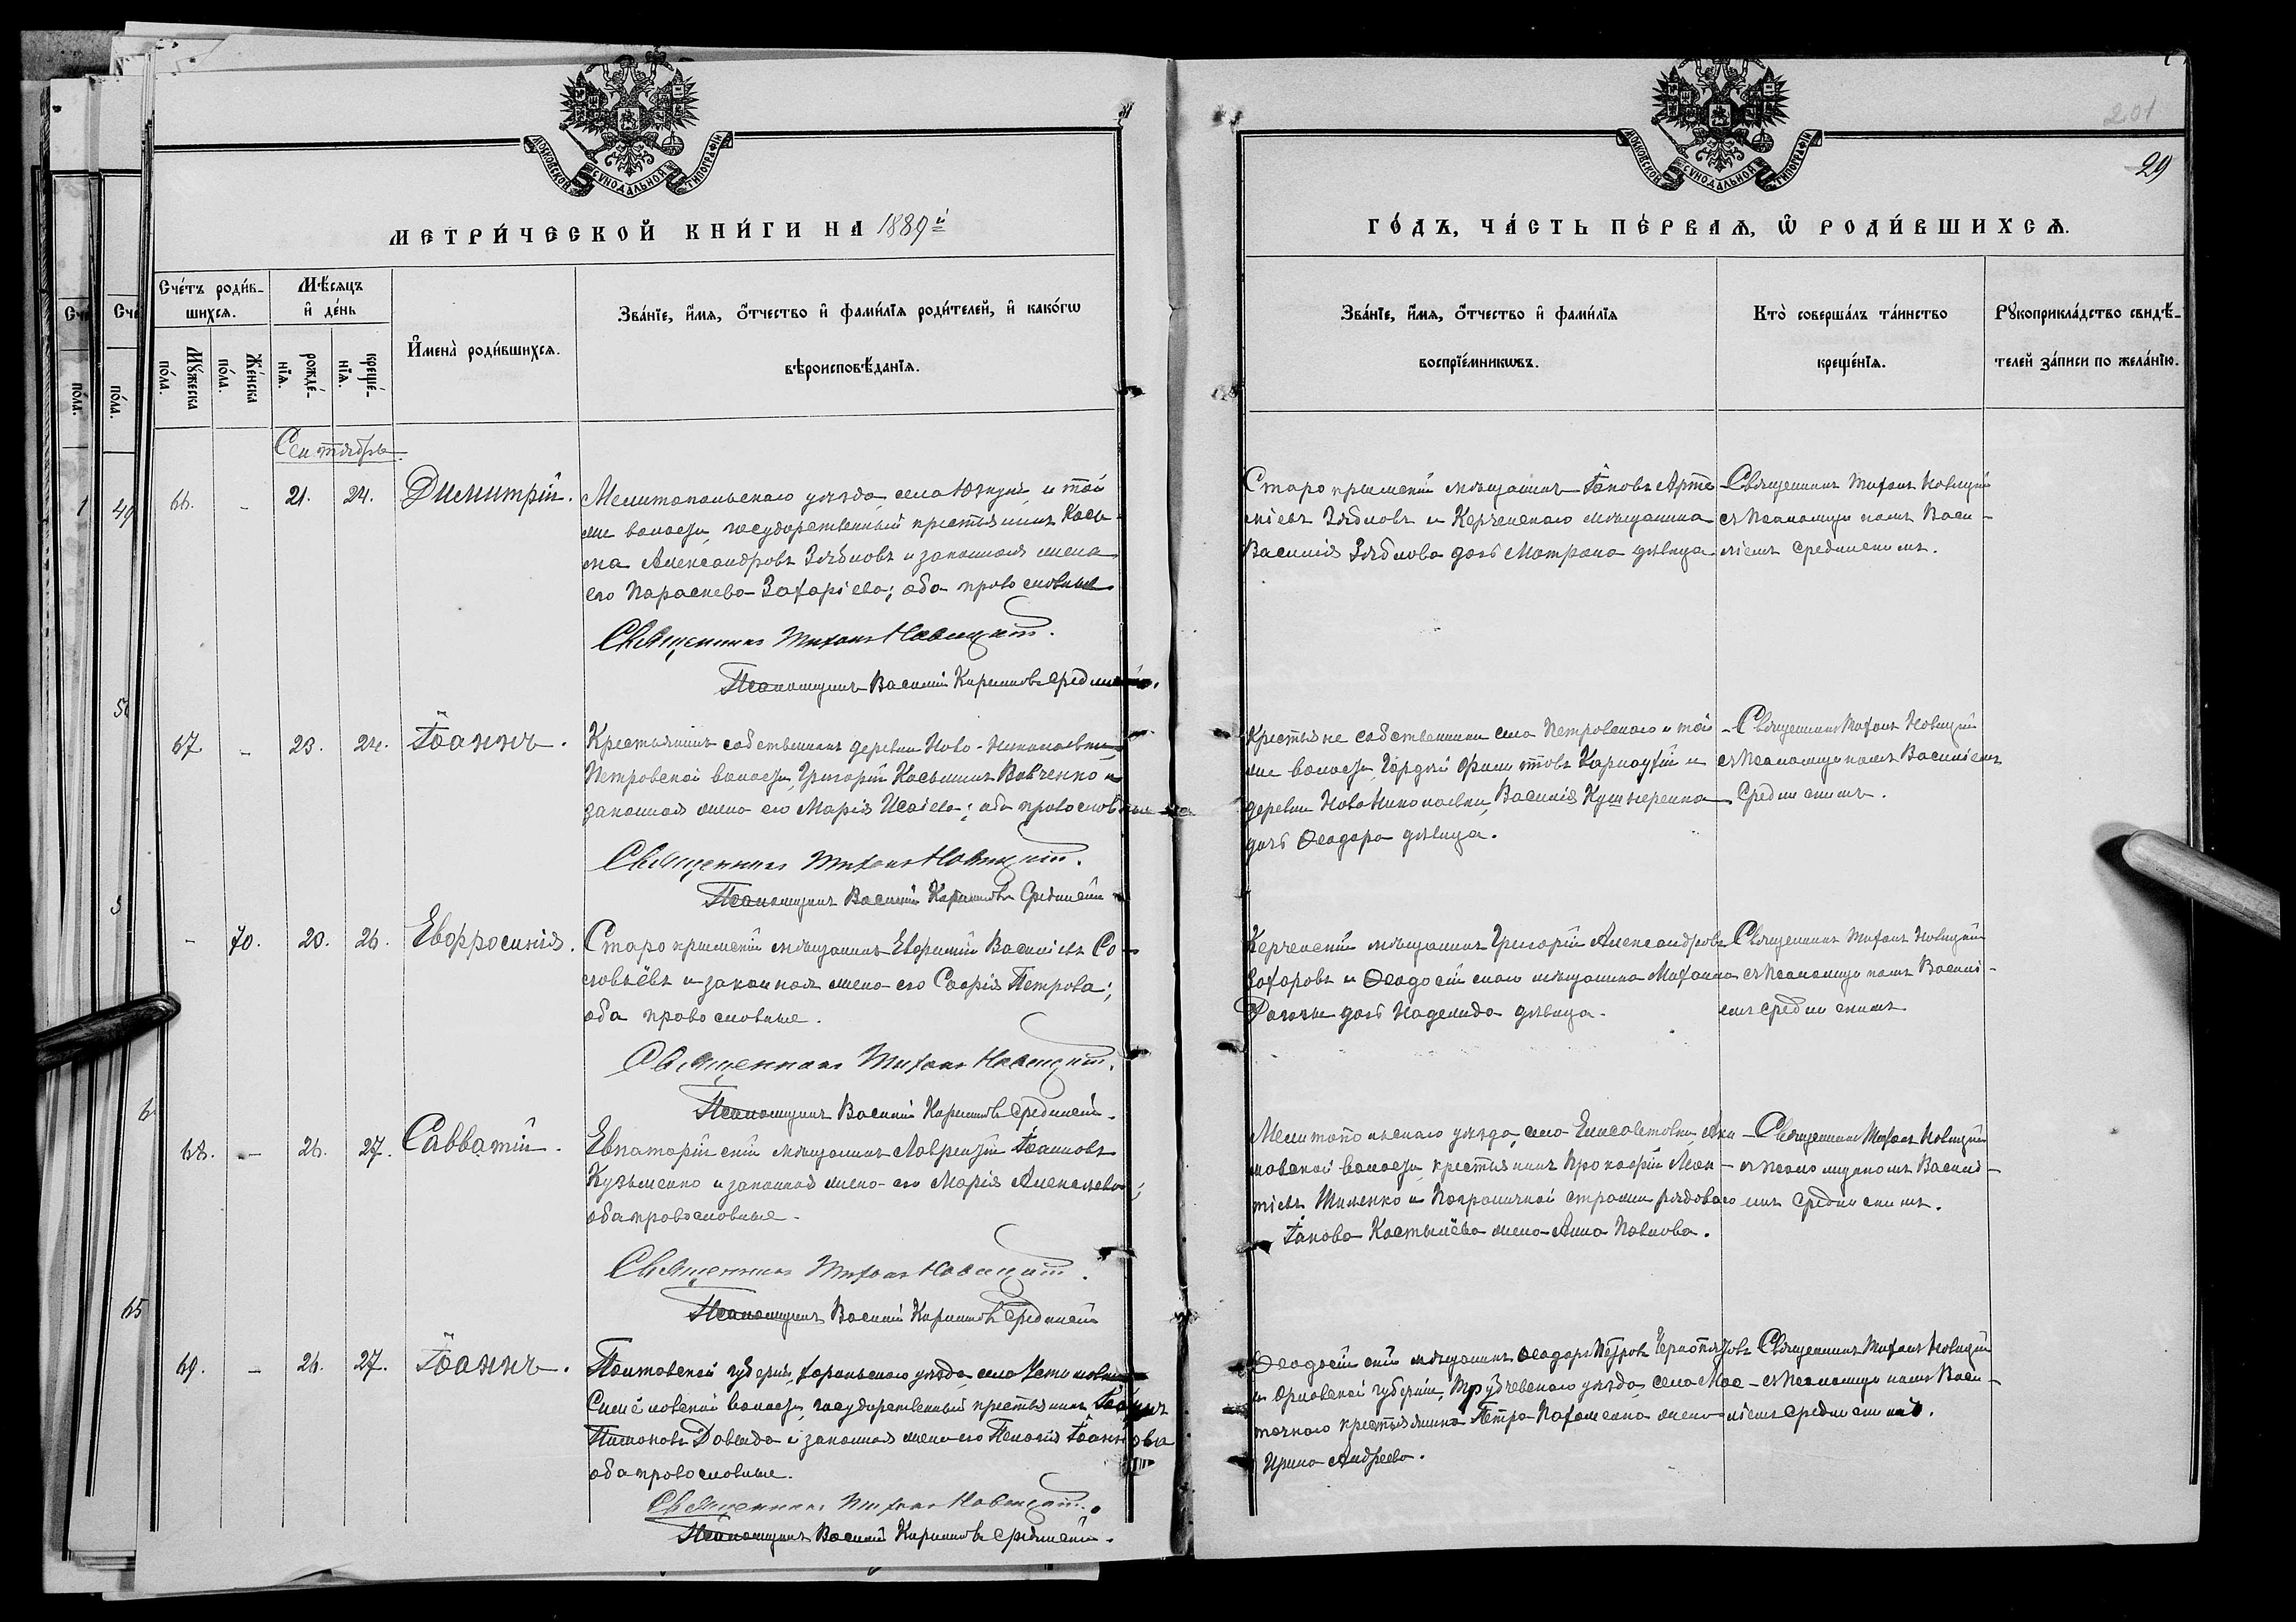 МОСКОВСКОЙ СѴНОДАЛЬНОЙ ТИПОГРАФІИ
МЕТРИ́ЧЕСКОЙ КНИ́ГИ НА 1889й
Сче́тъ роди́в-
шихсѧ.
Мѣ́сѧцъ
и҆ де́нь
Мꙋ́жеска
по́ла.
Же́нска
по́ла.
рожде́-
нїѧ.
креще́-
нїѧ.
И҆мена̀ роди́вшихсѧ.
Зва́нїе, и҆́мѧ, ѻ҆́тчество и҆ фами́лїѧ роди́телей, и҆ како́гѡ
вѣроисповѣ́данїѧ.
Сентябрь
66. - 21. 24. Димитрій.
Мелитопольскаго уѣзда, села и той
же волости, государственный крестьянинъ Кось-
ма Александровъ Зябловъ и законная жена
его Параскева Захаріева; оба православные
Священникъ Тихонъ Новицкій.
Псаломщикъ Василій Кирилловъ Срединскій.
67 - 23. 24. Іоаннъ.
Крестьянинъ собственникъ деревни Ново-Николаевки,
Петровской волости, Григорій Косьминъ Вовченко и
законная жена его Марія Исаіева; оба православные
Священникъ Тихонъ Новицкій.
Псаломщикъ Василій Кирилловъ Срединскій
- 70. 20. 26. Евфросинія.
Старокрымскій мѣщанинъ Евфимій Васильевъ Со-
ловьёвъ и законная жена его Софія Петрова;
оба православные.
Священникъ Тихонъ Новицкій.
Псаломщикъ Василій Кирилловъ Срединскій.
68. - 26. 27. Савватій.
Евпаторійскій мѣщанинъ Лаврентій Іоанновъ
Кузьменко и законная жена его Марія Алексѣева;
оба православные.
Священникъ Тихонъ Новицкій.
Псаломщикъ Василій Кирилловъ Срединскій
69. - 26. 27. Іоаннъ.
Полтавской губерніи, Хорольскаго уѣзда, села Устимовки
волости, государственный крестьянинъ Іоаннъ
Давида и законная жена его Пелагія Іоаннова
оба православные.
Священникъ Тихонъ Новицкій.
Псаломщикъ Василій Кирилловъ Срединскій.
МОСКОВСКОЙ СѴНОДАЛЬНОЙ ТИПОГРАФІИ
201
29
ГО́ДЪ, ЧА́СТЬ ПЕ́РВАѦ, Ѡ҆ РОДИ́ВШИХСѦ.
Зва́нїе, и҆́мѧ, ѻ҆́тчество и҆ фами́лїѧ
воспрїе́мникѡвъ.
Кто̀ соверша́лъ та́инство
креще́нїѧ.
Рꙋкоприкла́дство свидѣ́-
телей за́писи по жела́нїю.
Старокрымскій мѣщанинъ Іаковъ Арте-
міевъ Зябловъ и Керченскаго мѣщанина
Василія Зяблова дочь Матрона дѣвица
Священникъ Тихонъ Новицкій
съ Псаломщикомъ Васи-
ліемъ Срединскимъ.
Крестьяне собственники села Петровскаго и той
же волости, Гордѣй Филипповъ и
деревни Ново Николаевки, Василія Кушнеренка
дочь Ѳеодора дѣвица.
Священникъ Тихонъ Новицкій
съ Псаломщикомъ Василіемъ
Срединскимъ.
Керченскій мѣщанинъ Григорій Александровъ
Захаровъ и Ѳеодосійскаго мѣщанина Михаила
дочь Надежда дѣвица.
Священникъ Тихонъ Новицкій
съ Псаломщикомъ Василі-
емъ Срединскимъ
Мелитопольскаго уѣзда, села Елисаветовки, Аки-
мовской волости, крестьянинъ Прокофій Леон-
тіевъ и Пограничной стражи рядового
Іакова Костылёва жена Анна Павлова.
Священникъ Тихонъ Новицкій
съ Псаломщикомъ Василі-
емъ Срединскимъ.
Ѳеодосійскій мѣщанинъ Ѳеодоръ Петровъ
и Орловской губерніи, Трубчевскаго уѣзда, села
крестьянина Петра Пахоменка жена
Ирина Андреева.
Священникъ Тихонъ Новицкій
съ Псаломщикомъ Васи-
ліемъ Срединскимъ.